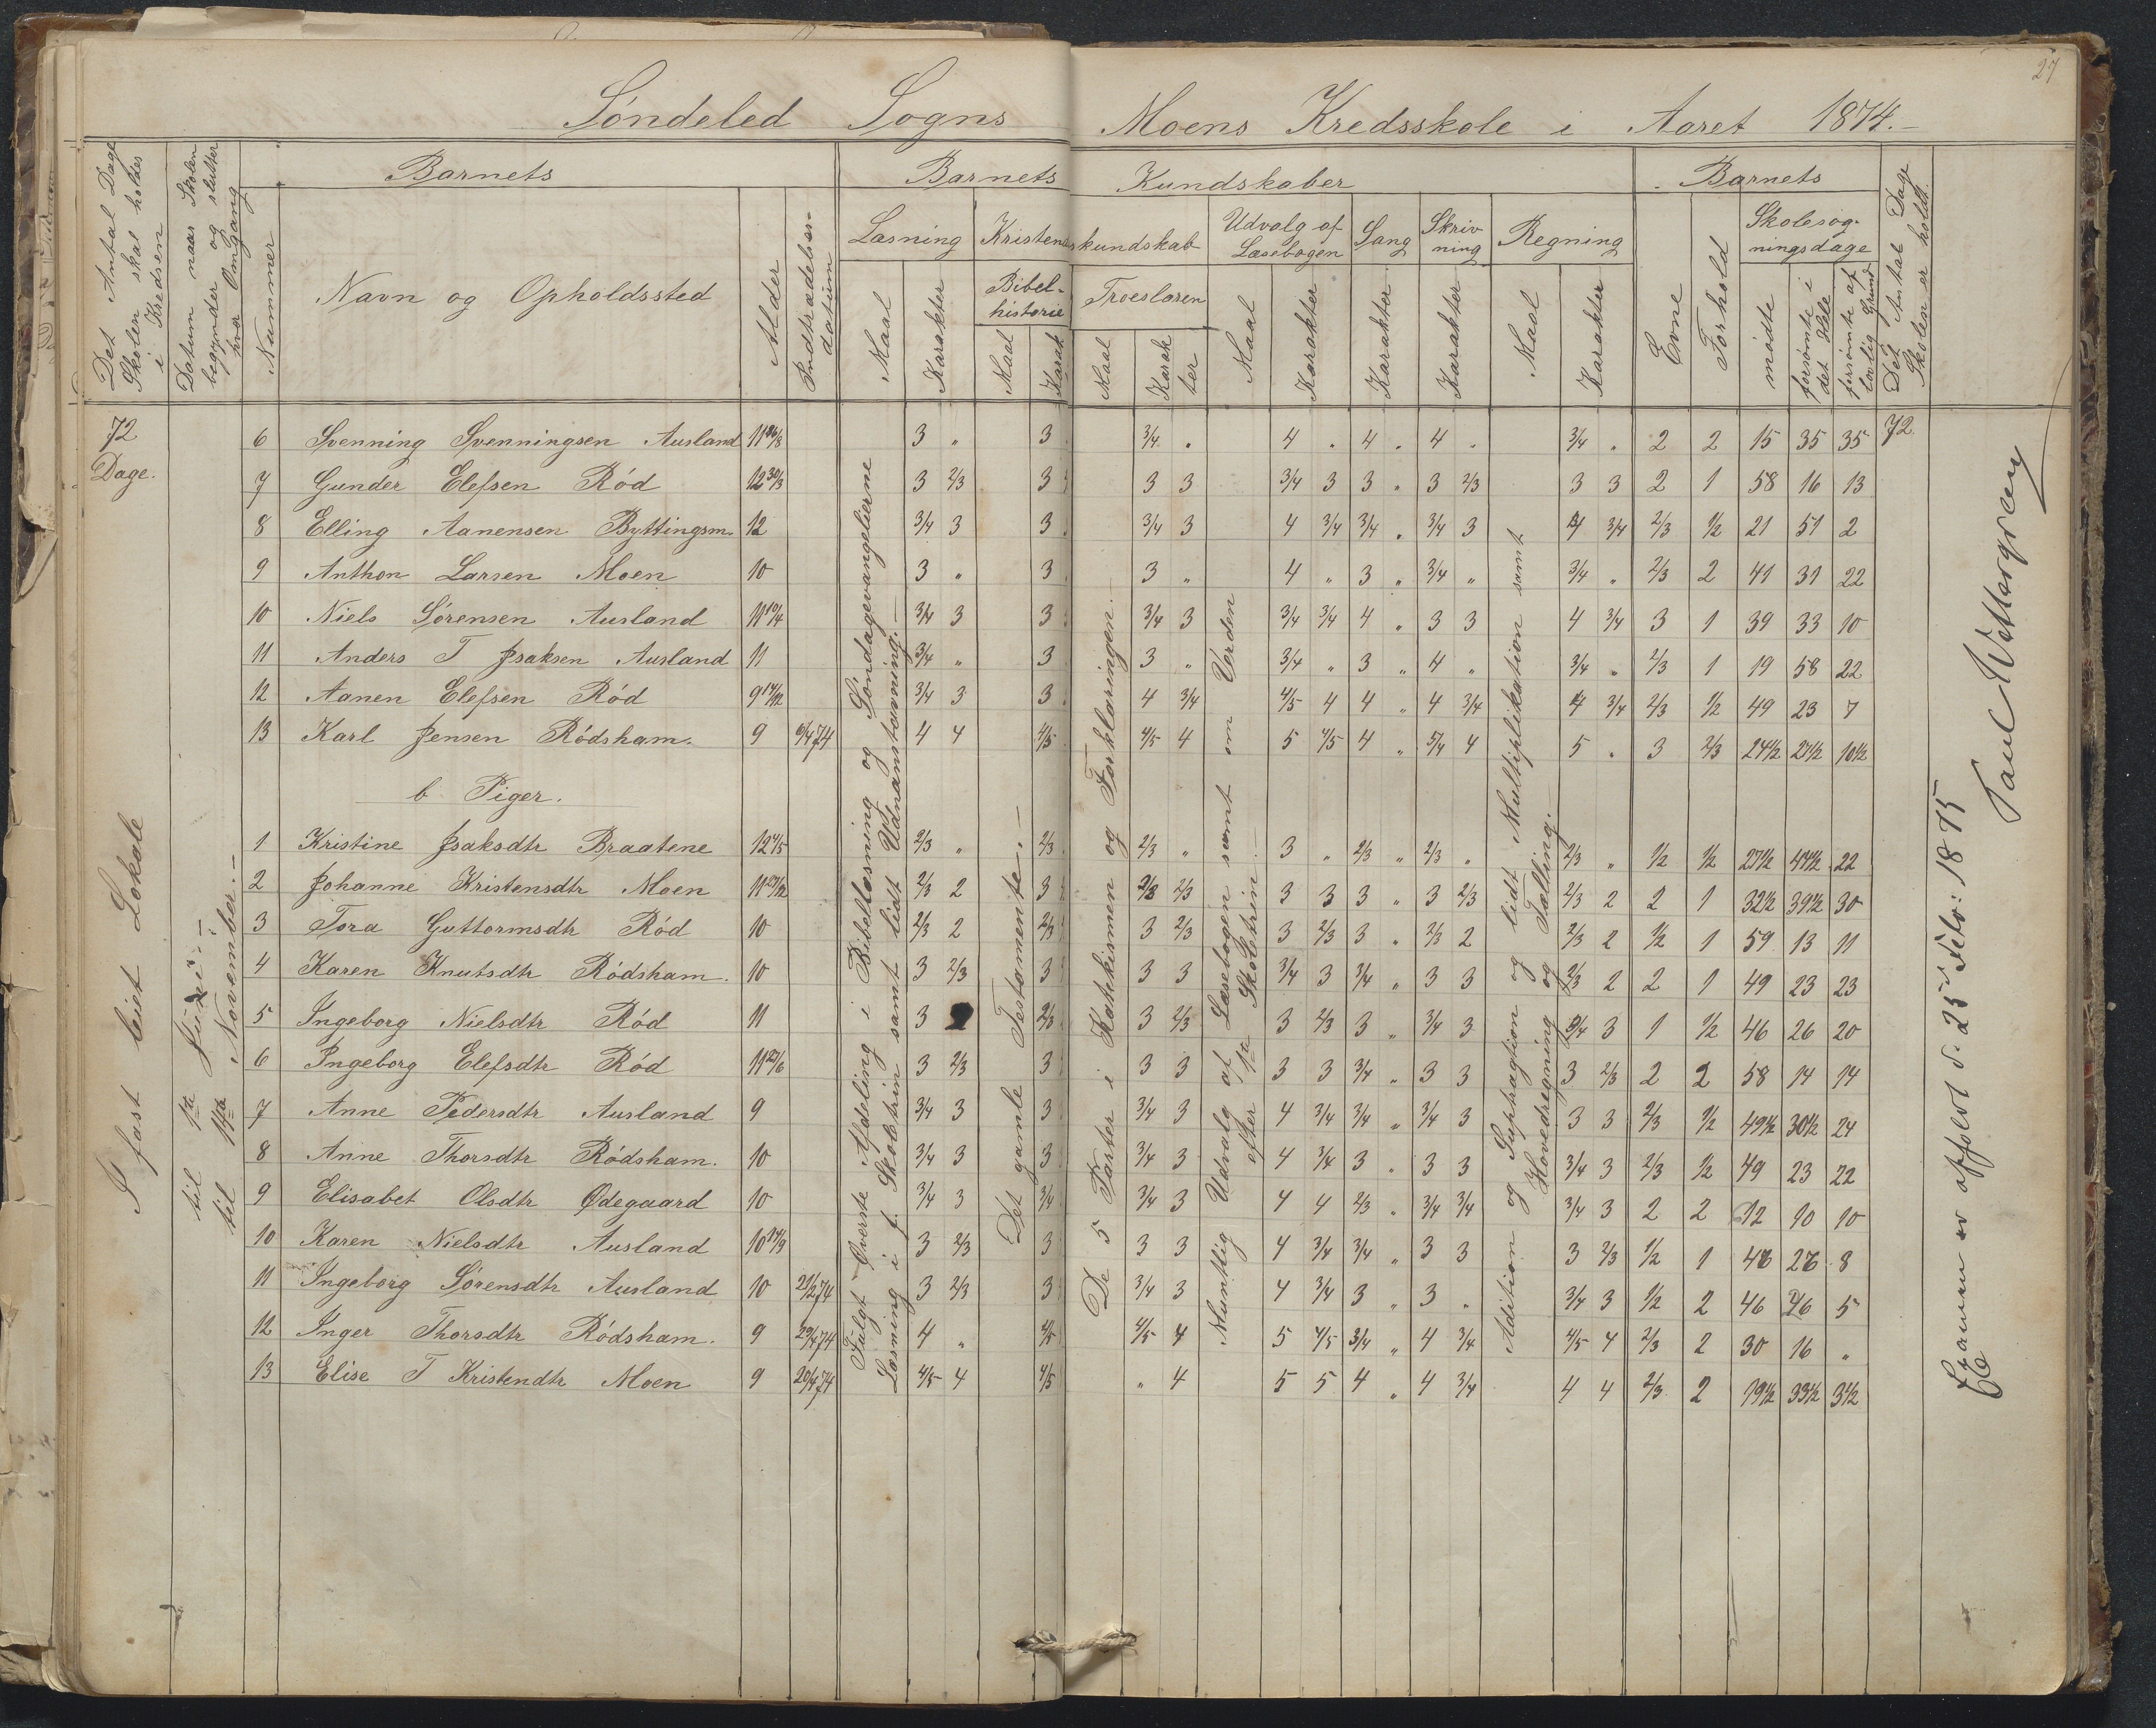 27
Söndeled Sogns Moens Kredsskole i Aaret 1874.
Det Antal Dage Skolen skal holdes i Kredsen
Datum naar Skolen begynder og slutter hver Omgang
Nummer
Barnets
Navn og Opholdssted
Alder
Indtrædelsesdatum
Barnets Kundskaber
Læsning
Maal
Karakter
Kristendomskundskab
Bibelhistorie
Maal
Karak
Troeslæren
Maal
Karakter
Udvalg af Læsebogen
Maal
Karakter
Sang
Karakter
Skrivning
Karakter
Regning
Maal
Karakter
Barnets
Evne
Forhold
Skolesøgningsdage
mødte
forsømte i det Hele
forsømte af lovlig Grund
Det Antal Dage Skolen er holdt.
72 Dage.
I fast leiet Lokale
til 1ste Juni
til 14de November.
Fulgt Øverste Afdeling i Bibellæsning og Søndagsevangelierne
Læsning i f. Skoletrin samt lidt Udnanstavning.
Det gamle Testamente.
De 5 Parter i Katekismen og Forklaringen.
Muntlig Udvalg af Læsebogen samt om Verden
efter 1ste Skoletrin.
Adition og Suptragtion og lidt Multiplikation samt
Hovedregning og Tælling.
6 Svenning Svenningsen Ausland 11 26/8 3 " 3 3/4 " 4 " 4 " 4 " 3/4 " 2 2 15 35 35 72
7 Gunder Elefsen Röd 12 30/3 3 2/3 3 3 3 3/4 3 3 " 3 2/3 3 3 2 1 58 16 13
8 Elling Aanensen Byttingsm. 12 3/4 3 3 3/4 3 4 3/4 3/4 " 3/4 3 4 3/4 2/3 1/2 21 51 2
9 Anthon Larsen Moen 10 3 " 3 3 " 4 " 3 " 3/4 " 3/4 " 2/3 2 41 31 22
10 Niels Sörensen Ausland 11 10/4 3/4 3 3 3/4 3 3/4 3/4 4 " 3 3 4 3/4 3 1 39 33 10
11 Anders T Isaksen Ausland 11 3/4 " 3 3 " 3/4 " 3 " 4 " 3/4 " 2/3 1 19 58 22
12 Aanen Elefsen Röd 9 14/12 3/4 3 3 4 3/4 4/5 4 4 " 4 3/4 4 3/4 2/3 1/2 49 23 7
13 Karl Jensen Rödsham. 9 6/4 74 4 4 4/5 4/5 4 5 4/5 4 " 5/4 4 5 " 3 2/3 24 1/2 27 1/2 10 1/2
b Piger.
1 Kristine Isaksdtr Braatene 12 4/5 2/3 " 2/3 2/3 " 3 " 2/3 " 2/3 " 2/3 " 1/2 1/2 27 1/2 44 1/2 22
2 Johanne Kristensdtr Moen 11 27/12 2/3 2 3 2/3 2/3 3 3 3 " 3 2/3 2/3 2 2 1 32 1/2 39 1/2 30
3 Tora Guttormsdtr Röd 10 2/3 2 2/3 3 2/3 3 2/3 3 " 2/3 2 2/3 2 1/2 1 59 13 11
4 Karen Knutsdtr Rödsham. 10 3 2/3 3 3 3 3/4 3 3/4 " 3 3 2/3 2 2 1 49 23 23
5 Ingeborg Nielsdtr Röd 11 3 2 2/3 3 2/3 3 2/3 3 " 3/4 3 3/4 3 1 1/2 46 26 20
6 Ingeborg Elefsdtr Röd 11 21/6 3 2/3 3 3 3 3 3 3/4 " 3 3 3 2/3 2 2 58 14 14
7 Anne Pedersdtr Ausland 9 3/4 3 3 3/4 3 4 3/4 3/4 " 3/4 3 3 3 2/3 1/2 49 1/2 30 1/2 24
8 Anne Thorsdtr Rödsham. 10 3/4 3 3 3/4 3 4 3/4 3 " 3 3 3/4 3 2/3 1/2 49 23 22
9 Elisabet Olsdtr Ødegaard 10 3/4 3 3/4 3/4 3 4 4 2/3 " 3/4 3/4 3/4 3 2 2 12 10 10
10 Karen Nielsdtr Ausland 10 24/9 3 2/3 3 3 3 4 3/4 3/4 " 3 3 3 2/3 1/2 1 46 26 8
11 Ingeborg Sörensdtr Ausland 10 21/2 74 3 2/3 3 3/4 3 4 3/4 3 " 3 " 3/4 3 1/2 2 46 26 5
12 Inger Thorsdtr Rödsham. 9 29/4 74 4 " 4/5 4/5 4 5 4/5 3/4 " 4 3/4 4/5 4 2/3 2 30 16 "
13 Elise T Kristendtr Moen 9 20/4 74 4/5 4 4/5 " 4 5 5 4 " 4 3/4 4 4 2/3 2 19 1/2 33 1/2 3 1/2
Examen er afholdt d. 25 Febr: 1875
Paul